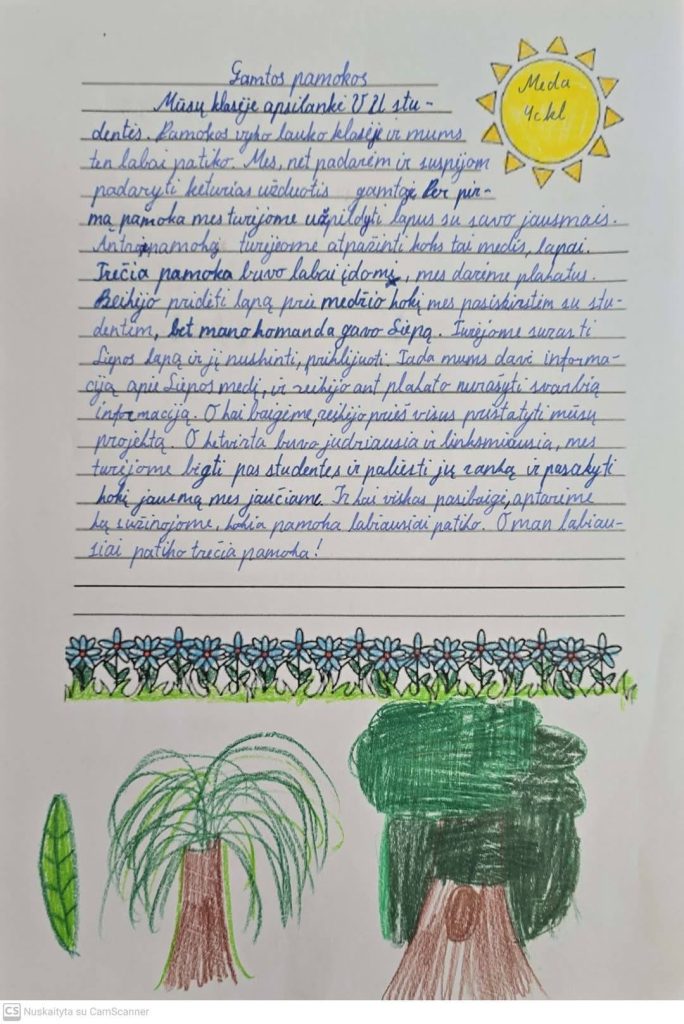 Gamtos pamokos
Meda
4ckl
Mūsų klasėje apsilankė VU stu-
dentės. Pamokos vyko lauko klasėje ir mums
ten labai patiko. Mes, net padarėm ir suspijom
padaryti keturias užduotis gamtoje Per pir-
mą pamoka mes turijome užpildyti lapus su savo jausmais.
Antrąpamoką turėjeome atpažinti koks tai medis, lapai.
Trečia pamoka buvo labai įdomi, mes darėme plakatus.
Reikėjo pridėti lapą prie medžio kokį mes pasiskirstėm su stu-
dentėm, bet mano komanda gavo Liepą. Turėjome surasti
Liepos lapą ir jį nushinti, priklijuoti. Tada mums davė informa-
ciją apie Liepos medį, ir reikėjo ant plakato nurašyti svarbią
informaciją. O kai baigėme, reikėjo prieš visus pristatyti mūsų
projektą. O ketvirta buvo judriausia ir linksmiausia, mes
turėjome bigti pas studentes ir paliesti jų ranką ir pasakyti
kokį jausmą mes jaučiame. Ir kai viskas pasibaigė, aptarėme
ką sužinojome, kokia pamoka labiausiai patiko. O man labiau-
siai patiko trečia pamoka!
CS Nuskaityta su CamScanner